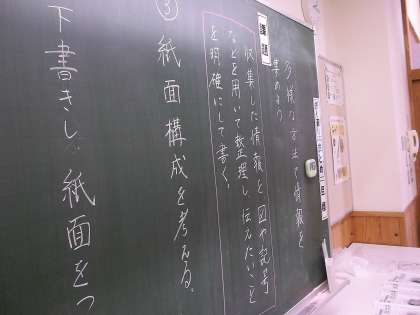 多様な方法で情報を
集めよう
課題
収集した情報を、図や記号
などを用いて整理し、伝えたいこと
を明確にして書く。
③
紙面構成を考える。
下書きし、紙面をつ